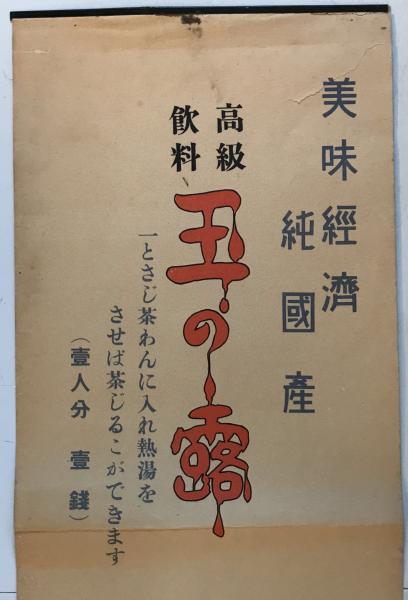 美味經濟
純國產
高級
飲料
玉の露
一とさじ茶わんに入れ熱湯を
させば茶じるこができます
（壹人分 壹錢）